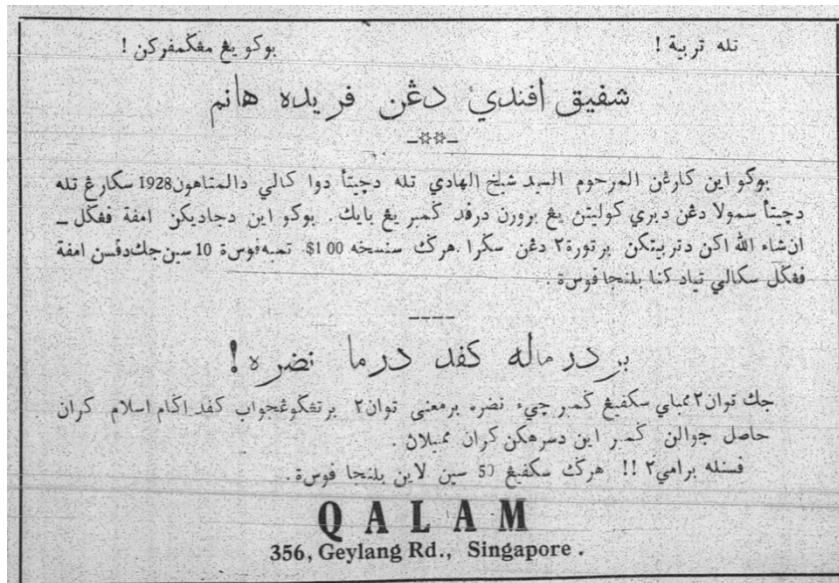 تله تربية !
بوكو يڠ مڠݢمفركن !
شفيق افندي دڠن فريده هانم
بوكو اين كارڠن المرحوم السيد شيخ الهادي تله دچيتأ دوا كالي دالم تاهون 1928 سكارڠ تله
دچيتأ سمولا دڠن ديري كوليتن يڠ برورن درفد ݢمبر يڠ بايك . بوكو اين دجاديكن امفة ففݢل ــ
ان شاء الله اكن دتربيتكن برتورة٢ دڠن سݢرا . هرݢ سنسخه $1 00 تمبه فوسة 10 سين جك دفسن امفة
ففݢل سكالي تياد كنا بلنجا فوسة .
بر درماله كفد درما نضره !
جك توان٢ ممباي سكفيڠ ݢمبر چيء نضره برمعنى توان٢ برتڠݢوڠجواب كفد اݢام اسلام كران
حاصل جوالن ݢمبر اين دسرهكن كران ممبيلان .
فسنله برامي٢ !! هرݢ سكفيڠ 50 سين لاين بلنجا فوسة .
QALAM
356, Geylang Rd., Singapore .